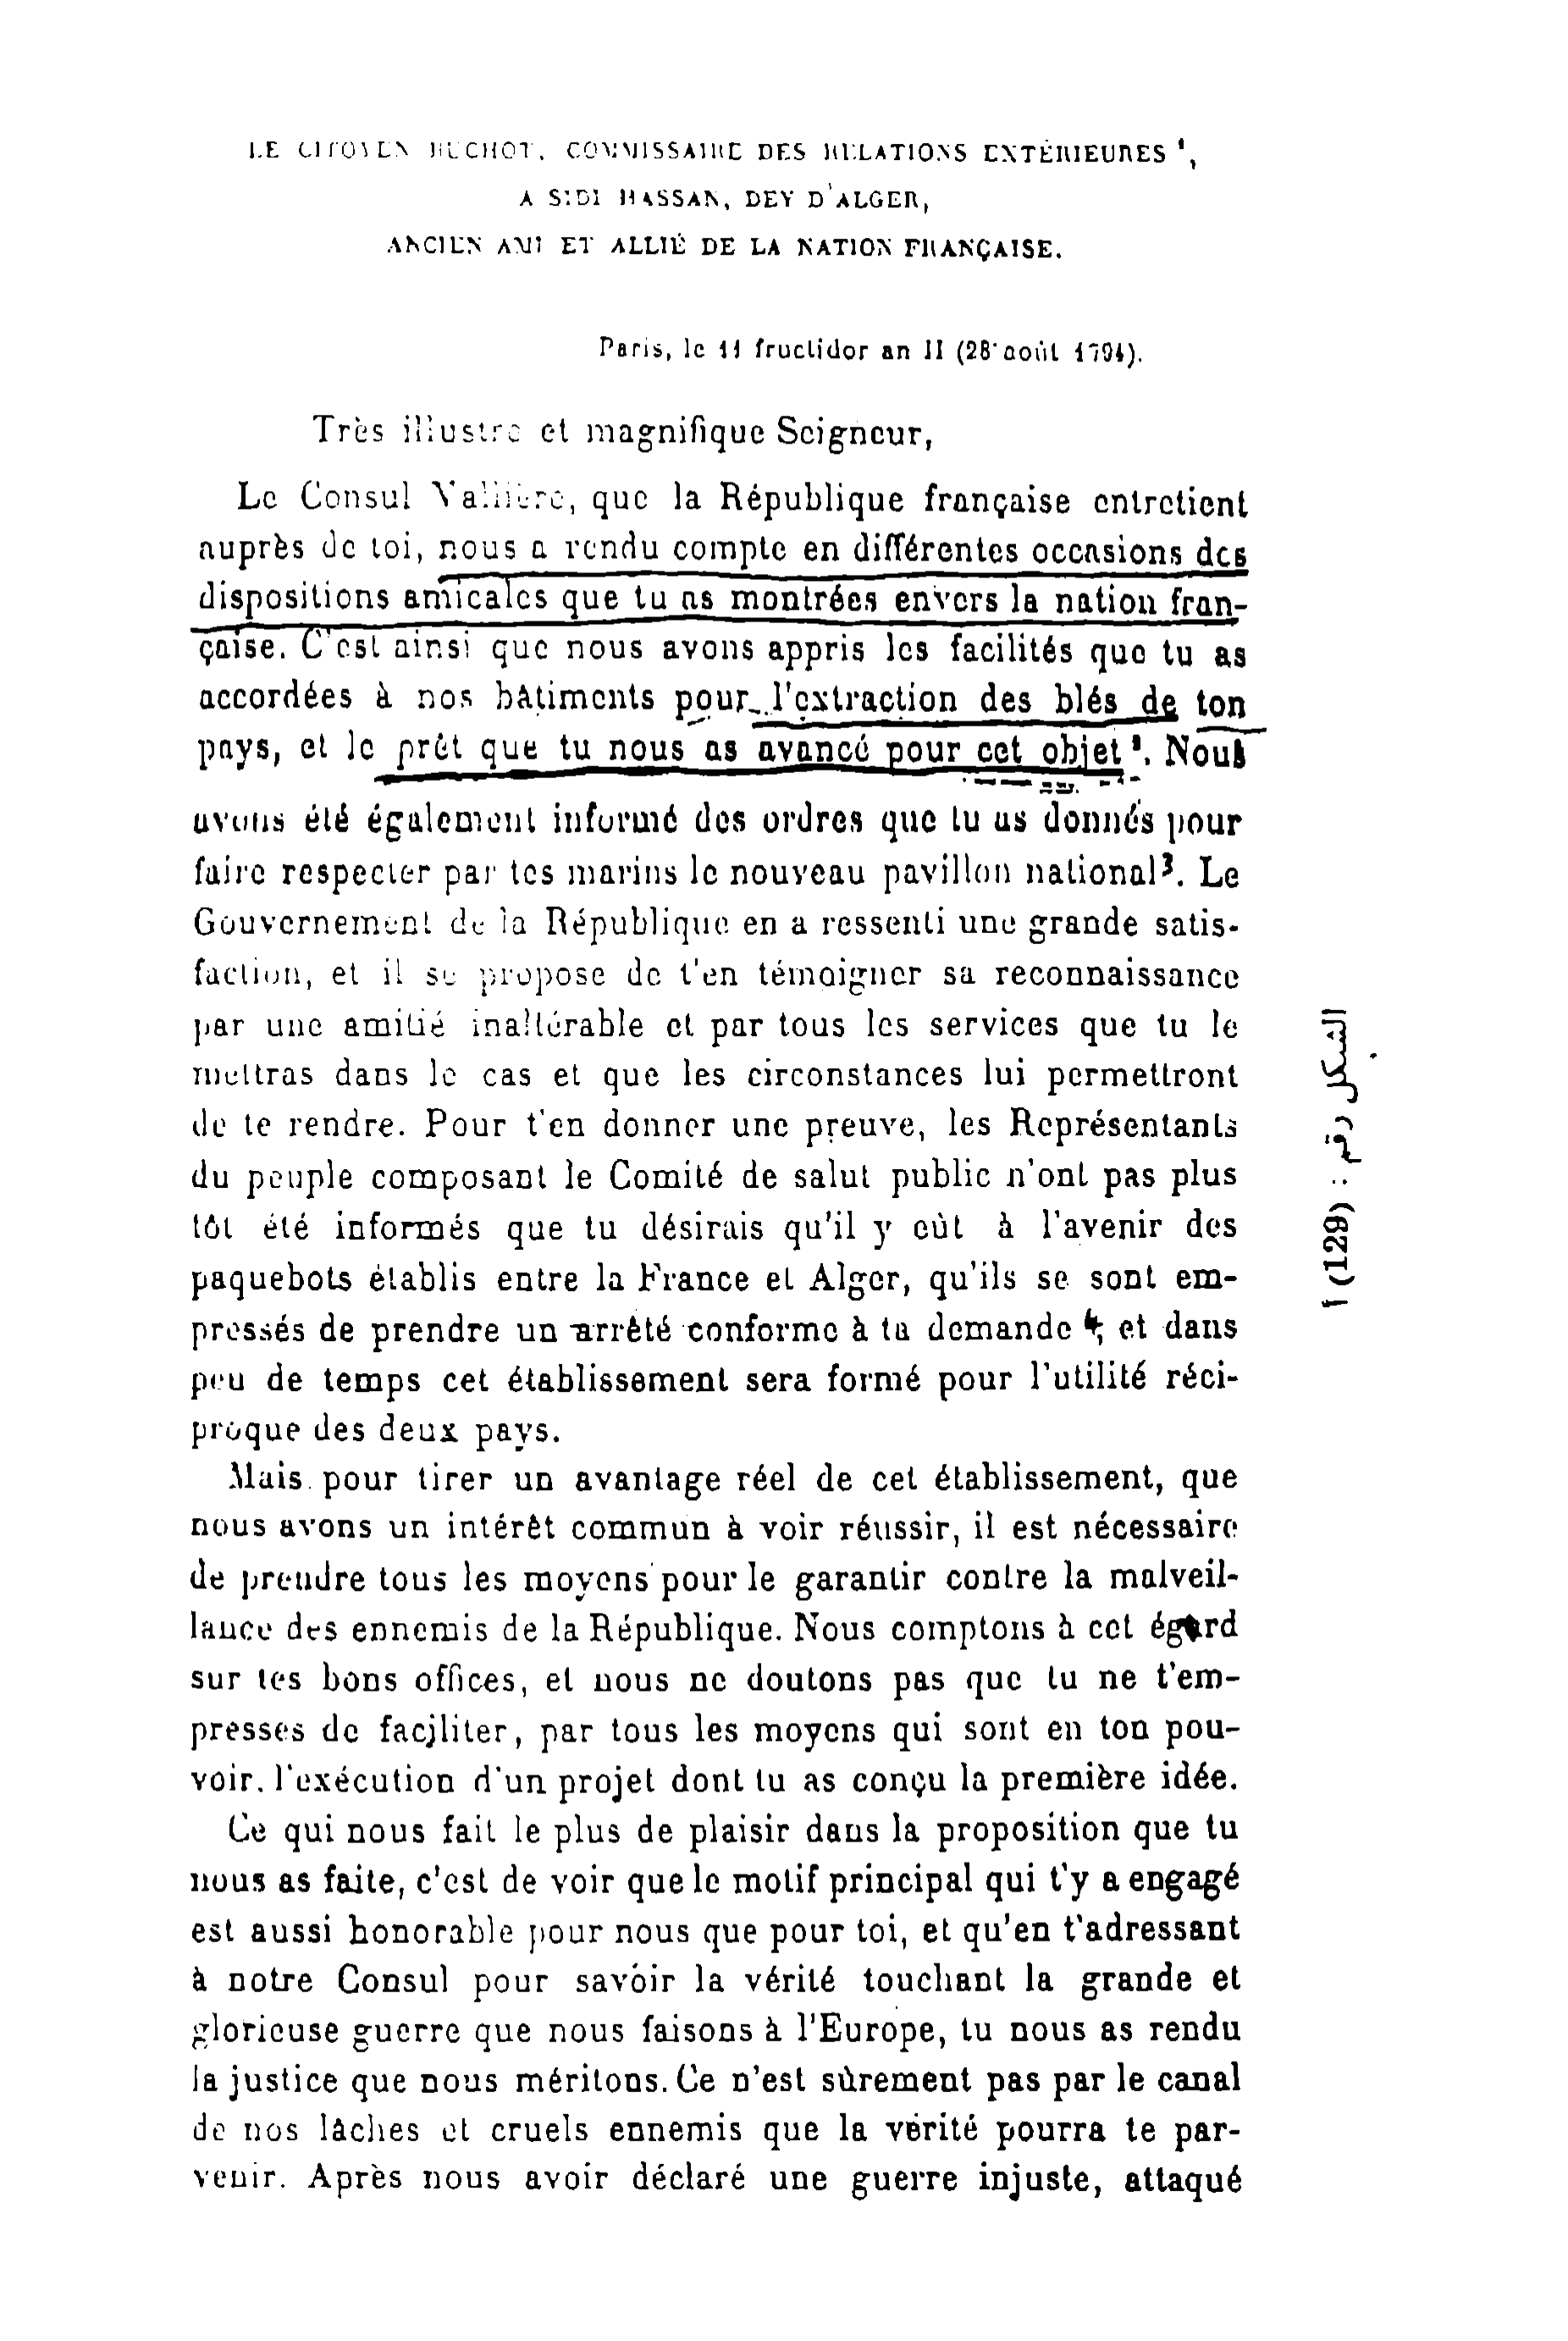 LE CITOYEN BUCHOT, COMMISSAIRE DES RELATIONS EXTÉRIEURES ¹,
A SIDI HASSAN, DEY D'ALGER,
ANCIEN AMI ET ALLIÉ DE LA NATION FRANÇAISE.
Paris, le 11 fructidor an II (28 août 1794).
Très illustre et magnifique Seigneur,
Le Consul Vallière, que la République française entretient
auprès de toi, nous a rendu compte en différentes occasions des
dispositions amicales que tu as montrées envers la nation fran-
çaise. C'est ainsi que nous avons appris les facilités que tu as
accordées à nos bâtiments pour l'extraction des blés de ton
pays, et le prêt que tu nous as avancé pour cet objet ². Nous
avons été également informé des ordres que tu as donnés pour
faire respecter par tes marins le nouveau pavillon national³. Le
Gouvernement de la République en a ressenti une grande satis-
faction, et il se propose de t'en témoigner sa reconnaissance
par une amitié inaltérable et par tous les services que tu le
mettras dans le cas et que les circonstances lui permettront
de te rendre. Pour t'en donner une preuve, les Représentants
du peuple composant le Comité de salut public n'ont pas plus
tôt été informés que tu désirais qu'il y eût à l'avenir des
paquebots établis entre la France et Alger, qu'ils se sont em-
pressés de prendre un arrêté conforme à ta demande ⁴; et dans
peu de temps cet établissement sera formé pour l'utilité réci-
proque des deux pays.
Mais pour tirer un avantage réel de cet établissement, que
nous avons un intérêt commun à voir réussir, il est nécessaire
de prendre tous les moyens pour le garantir contre la malveil-
lance des ennemis de la République. Nous comptons à cet égard
sur tes bons offices, et nous ne doutons pas que tu ne t'em-
presses de faciliter, par tous les moyens qui sont en ton pou-
voir, l'exécution d'un projet dont tu as conçu la première idée.
Ce qui nous fait le plus de plaisir dans la proposition que tu
nous as faite, c'est de voir que le motif principal qui t'y a engagé
est aussi honorable pour nous que pour toi, et qu'en t'adressant
à notre Consul pour savoir la vérité touchant la grande et
glorieuse guerre que nous faisons à l'Europe, tu nous as rendu
la justice que nous méritons. Ce n'est sûrement pas par le canal
de nos lâches et cruels ennemis que la vérité pourra te par-
venir. Après nous avoir déclaré une guerre injuste, attaqué
الشكل رقم : (129) أ